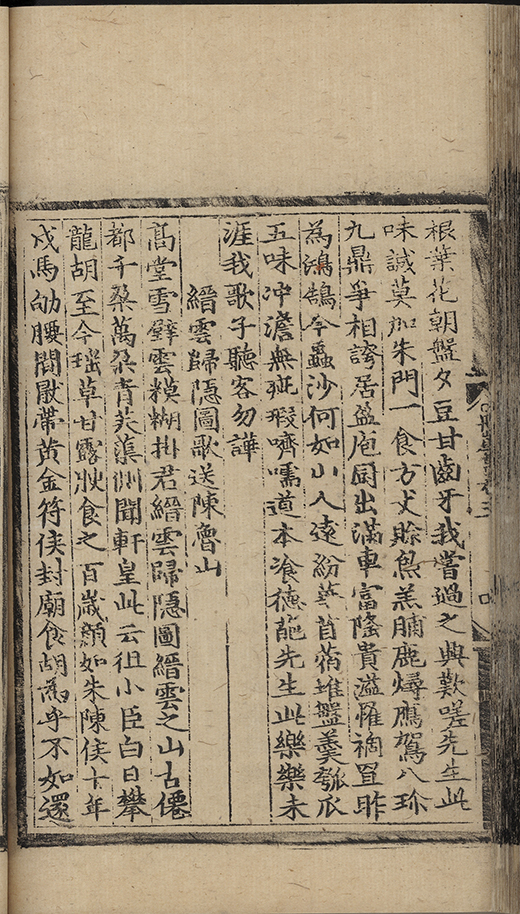 根葉花朝盤夕豆甘齒牙我嘗過之興歎嗟先生此
味誠莫加朱門一食方丈賒鳧羔腩鹿燖鴈駕八珎
九鼎爭相誇居盈庖厨出滿車富隆貴溢惟禍罝昨
為鴻鵠今蟲沙何如山人遠紛華苜蓿堆盤羹瓠瓜
五味冲澹無疵瑕嚌嚅道本飡德葩先生此樂樂未
涯我歌子聽客勿譁
縉雲歸隱圖歌送陳魯山
高堂雪壁雲糢糊掛君縉雲歸隱圖縉雲之山古僊
都千朶萬朶青芙蕖側聞軒皇此云徂小臣白日攀
龍胡至今瑶草甘露腴食之百歳顔如朱陳侯十年
戎馬劬腰間厭帶黄金符侯封廟食胡為乎不如還